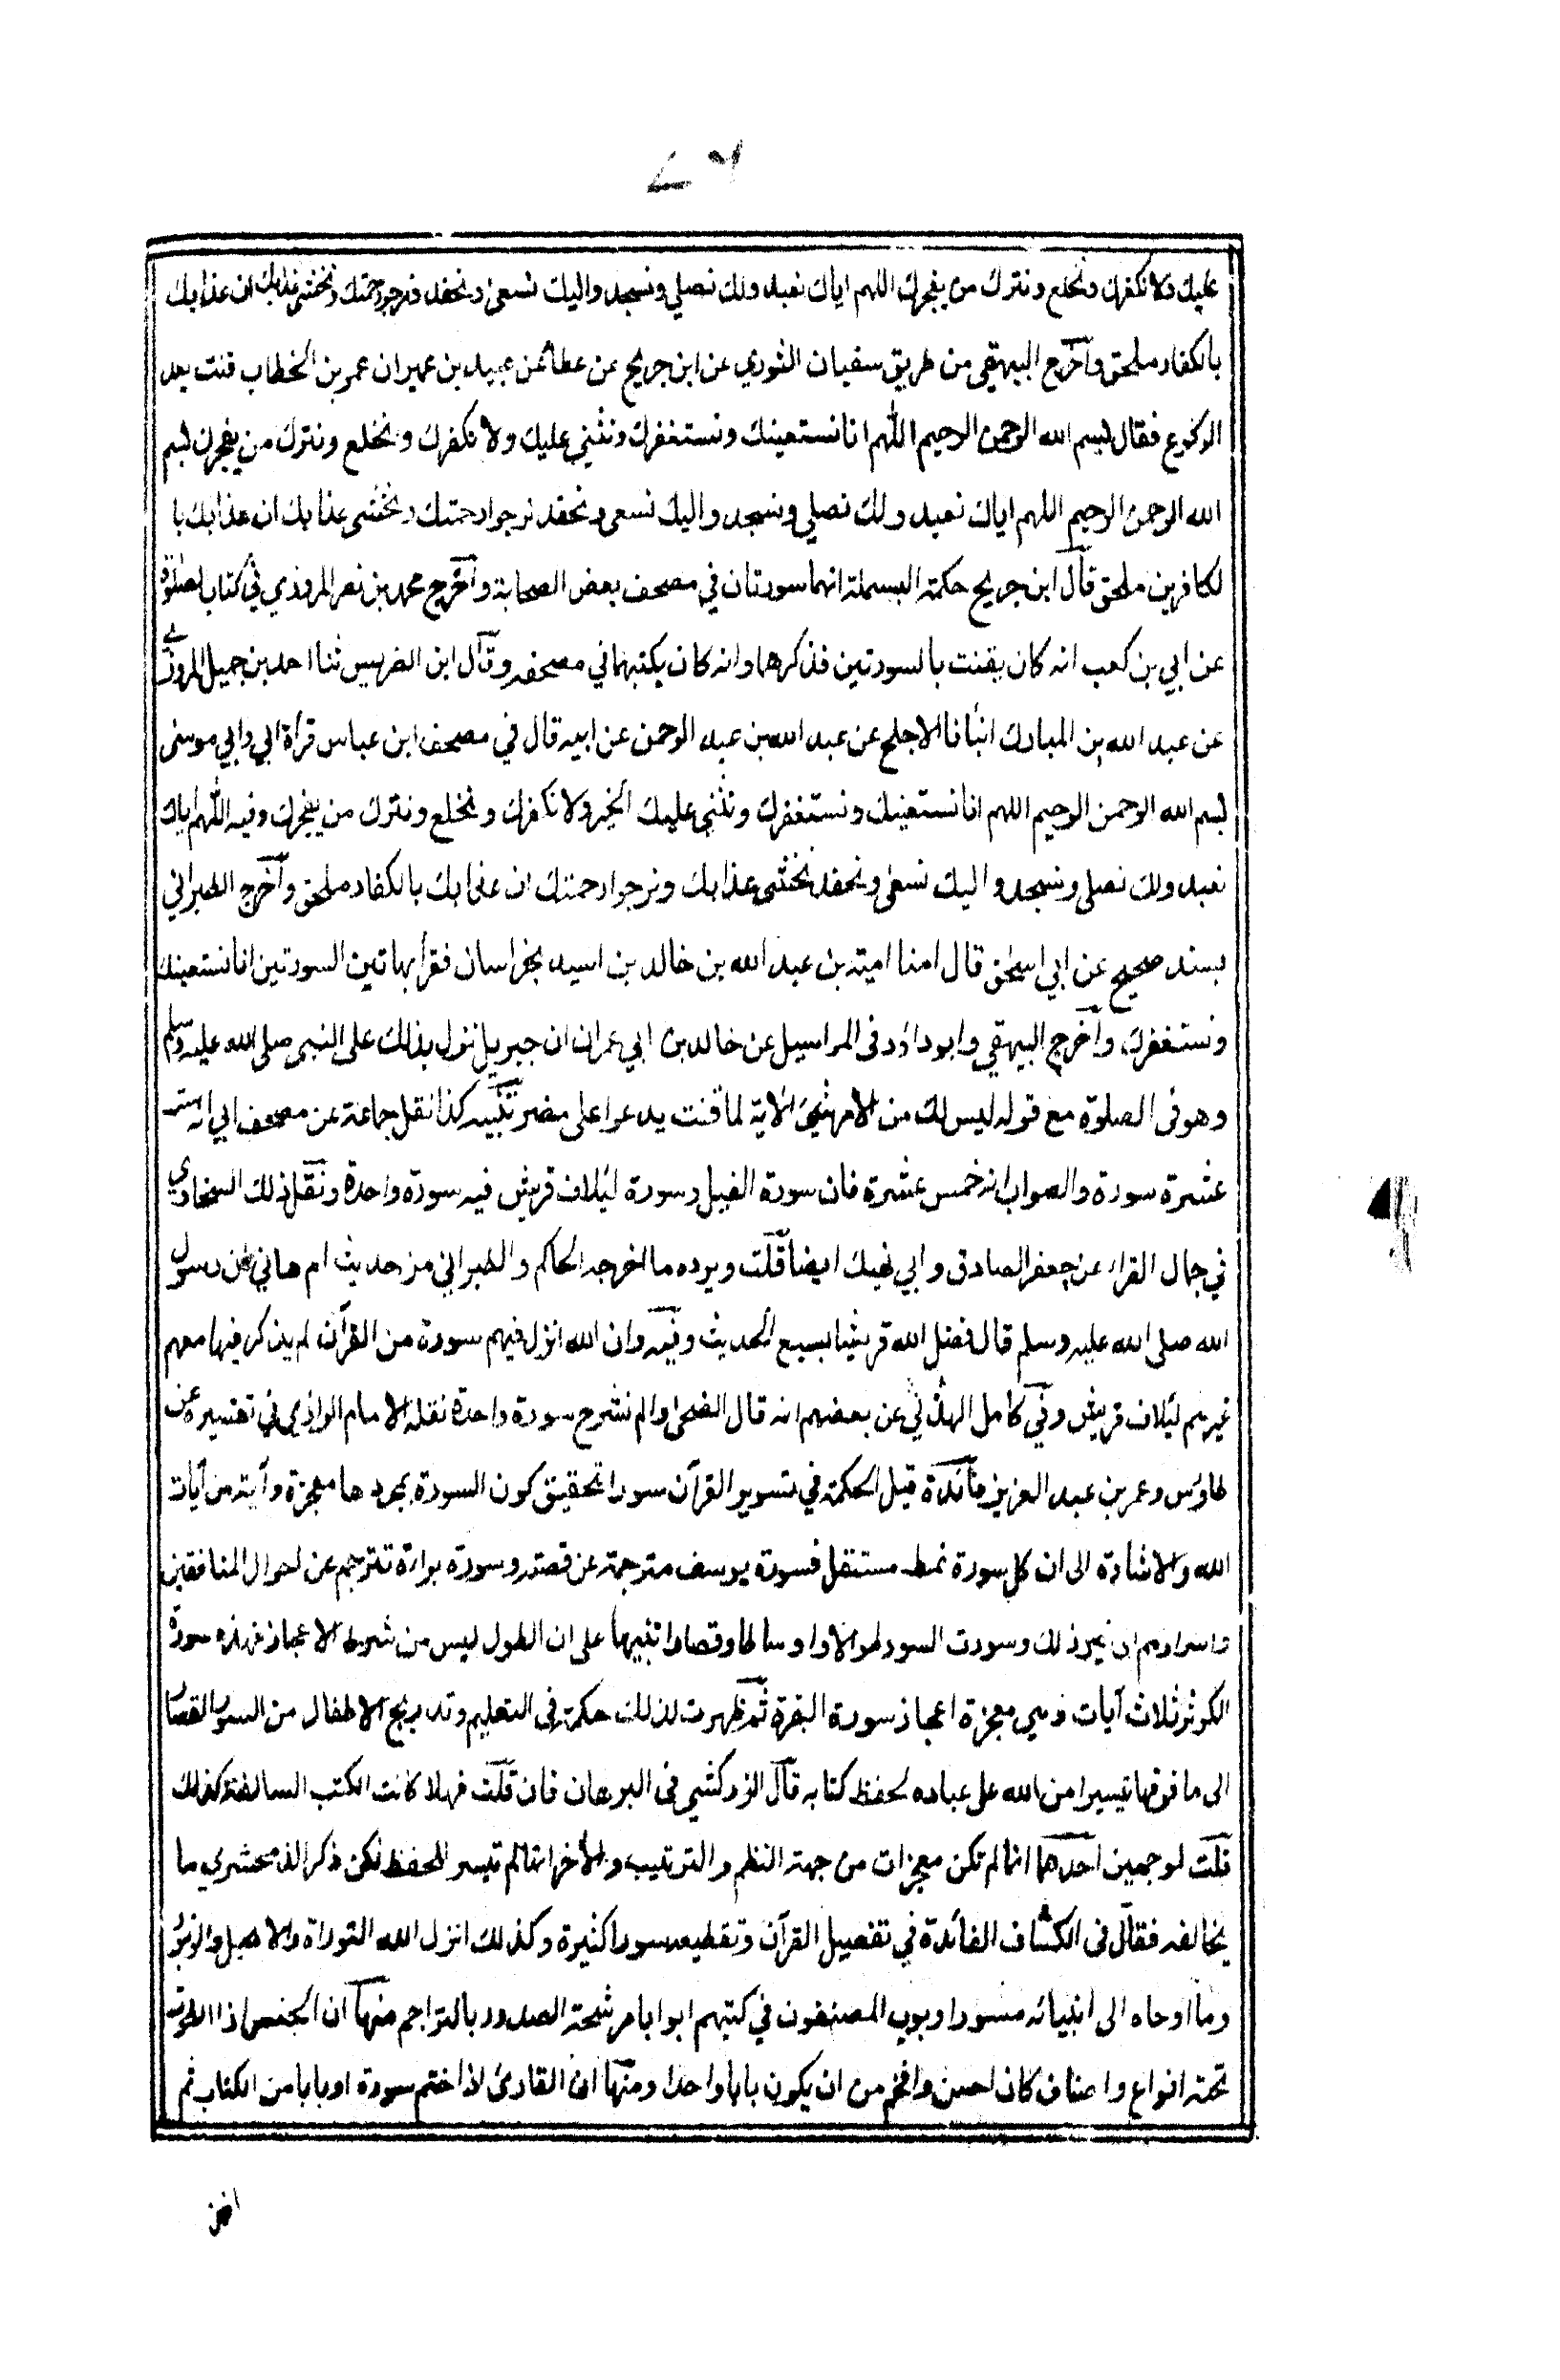 عليك ولا نكفرك ونخلع ونترك من يفجرك اللهم اياك نعبد ولك نصلي ونسجد واليك نسعى ونحفد ونرجو رحمتك ونخشى عذابك ان عذابك
بالكفار ملحق وآخرج البيهقي من طريق سفيان الثوري عن ابن جريج عن عطا عن عبيد بن عمير ان عمر بن الخطاب قنت بعد
الركوع فقال بسم الله الرحمن الرحيم اللهم انا نستعينك ونستغفرك ونثني عليك ولا نكفرك ونخلع ونترك من يفجرك بسم
الله الرحمن الرحيم اللهم اياك نعبد ولك نصلي ونسجد واليك نسعى ونحفد نرجوا رحمتك ونخشى عذابك ان عذابك با
لكافرين ملحق قآل ابن جريج حكمة البسملة انهما سورتان في مصحف بعض الصحابة وآخرج محمد بن نصر المروزي في كتاب الصلوة
عن ابي بن كعب انه كان يقنت بالسورتين فذكرهما وانه كان يكتبهما في مصحفه وقآل ابن الضريس ثنا احمد بن جميل المروزي
عن عبد الله بن المبارك انبأنا الاجلح عن عبد الله بن عبد الرحمن عن ابيه قال في مصحف ابن عباس قرأة ابي وابي موسى
بسم الله الرحمن الرحيم اللهم انا نستعينك ونستغفرك ونثني عليك الخير ولا نكفرك ونخلع ونترك من يفجرك وفيه اللهم اياك
نعبد ولك نصلى ونسجد واليك نسعى ونحفد نخشى عذابك ونرجوا رحمتك ان عذابك بالكفار ملحق وآخرج الطبراني
بسند صحيح عن ابي اسحق قال امنا امية بن عبد الله بن خالد بن اسيد بخراسان فقرأ بهاتين السورتين انا نستعينك
ونستغفرك وآخرج البيهقي وابو داؤد في المراسيل عن خالد بن ابي عمران ان جبريل نزل بذلك على النبى صلى الله عليه وسلم
وهو فى الصلوة مع قوله ليس لك من الامر شئ الآية لما قنت يدعوا على مضر تنبيه كذا نقل جماعة عن مصحف ابي انه ستـ
عشرة سورة والصواب انه خمس عشرة فان سورة الفيل وسورة لئيلاف قريش فيه سورة واحدة ونقل ذلك السخاوي
في جمال القراء عن جعفر الصادق وابي نهيك ايضا قلت ويرده ما اخرجه الحاكم والطبراني من حديث ام هاني عن رسول
الله صلى الله عليه وسلم قال فضل الله قريشا بسبع الحديث وفيه وان الله انزل فيهم سورة من القرآن لم يذكر فيها معهم
غيرهم لئيلاف قريش وفي كامل الهذلي عن بعضهم انه قال الضحى والم نشرح سورة واحدة نقله الامام الرازي في تفسيره عن
طاؤس وعمر بن عبد العزيز فائدة قيل الحكمة في تسوير القرآن سورا تحقيق كون السورة بمجردها معجزة وآية من آيات
الله والاشارة الى ان كل سورة نمط مستقل فسورة يوسف مترجمة عن قصته وسورة براءة تترجم عن احوال المنافقين
واسرارهم الى غير ذلك وسورت السور طوالا واوساطا وقصارا تنبيها على ان الطول ليس من شرط الاعجاز فهذه سورة
الكوثر ثلاث آيات وهي معجزة اعجاز سورة البقرة ثم ظهرت لذلك حكمة في التعليم وتدريج الاطفال من السور القصار
الى ما فوقها تيسيرا من الله على عباده لحفظ كتابه قآل الزركشي في البرهان فان قلت فهلا كانت الكتب السالفة كذلك
قلت لوجهين احدهما انها لم تكن معجزات من جهة النظم والترتيب والآخر انها لم تيسر للحفظ لكن ذكر الزمخشري ما
يخالفه فقال فى الكشاف الفائدة في تفصيل القرآن وتقطيعه سورا كثيرة وكذلك انزل الله التوراة والانجيل والزبور
وما اوحاه الى انبيائه مسورا وبوب المصنفون في كتبهم ابوابا مرشحة الصدور بالتراجم منها ان الجنس اذا انطوت
تحته انواع واصناف كان احسن وافخم من ان يكون بابا واحدا ومنها ان القارئ اذا ختم سورة او بابا من الكتاب ثم
اخذ